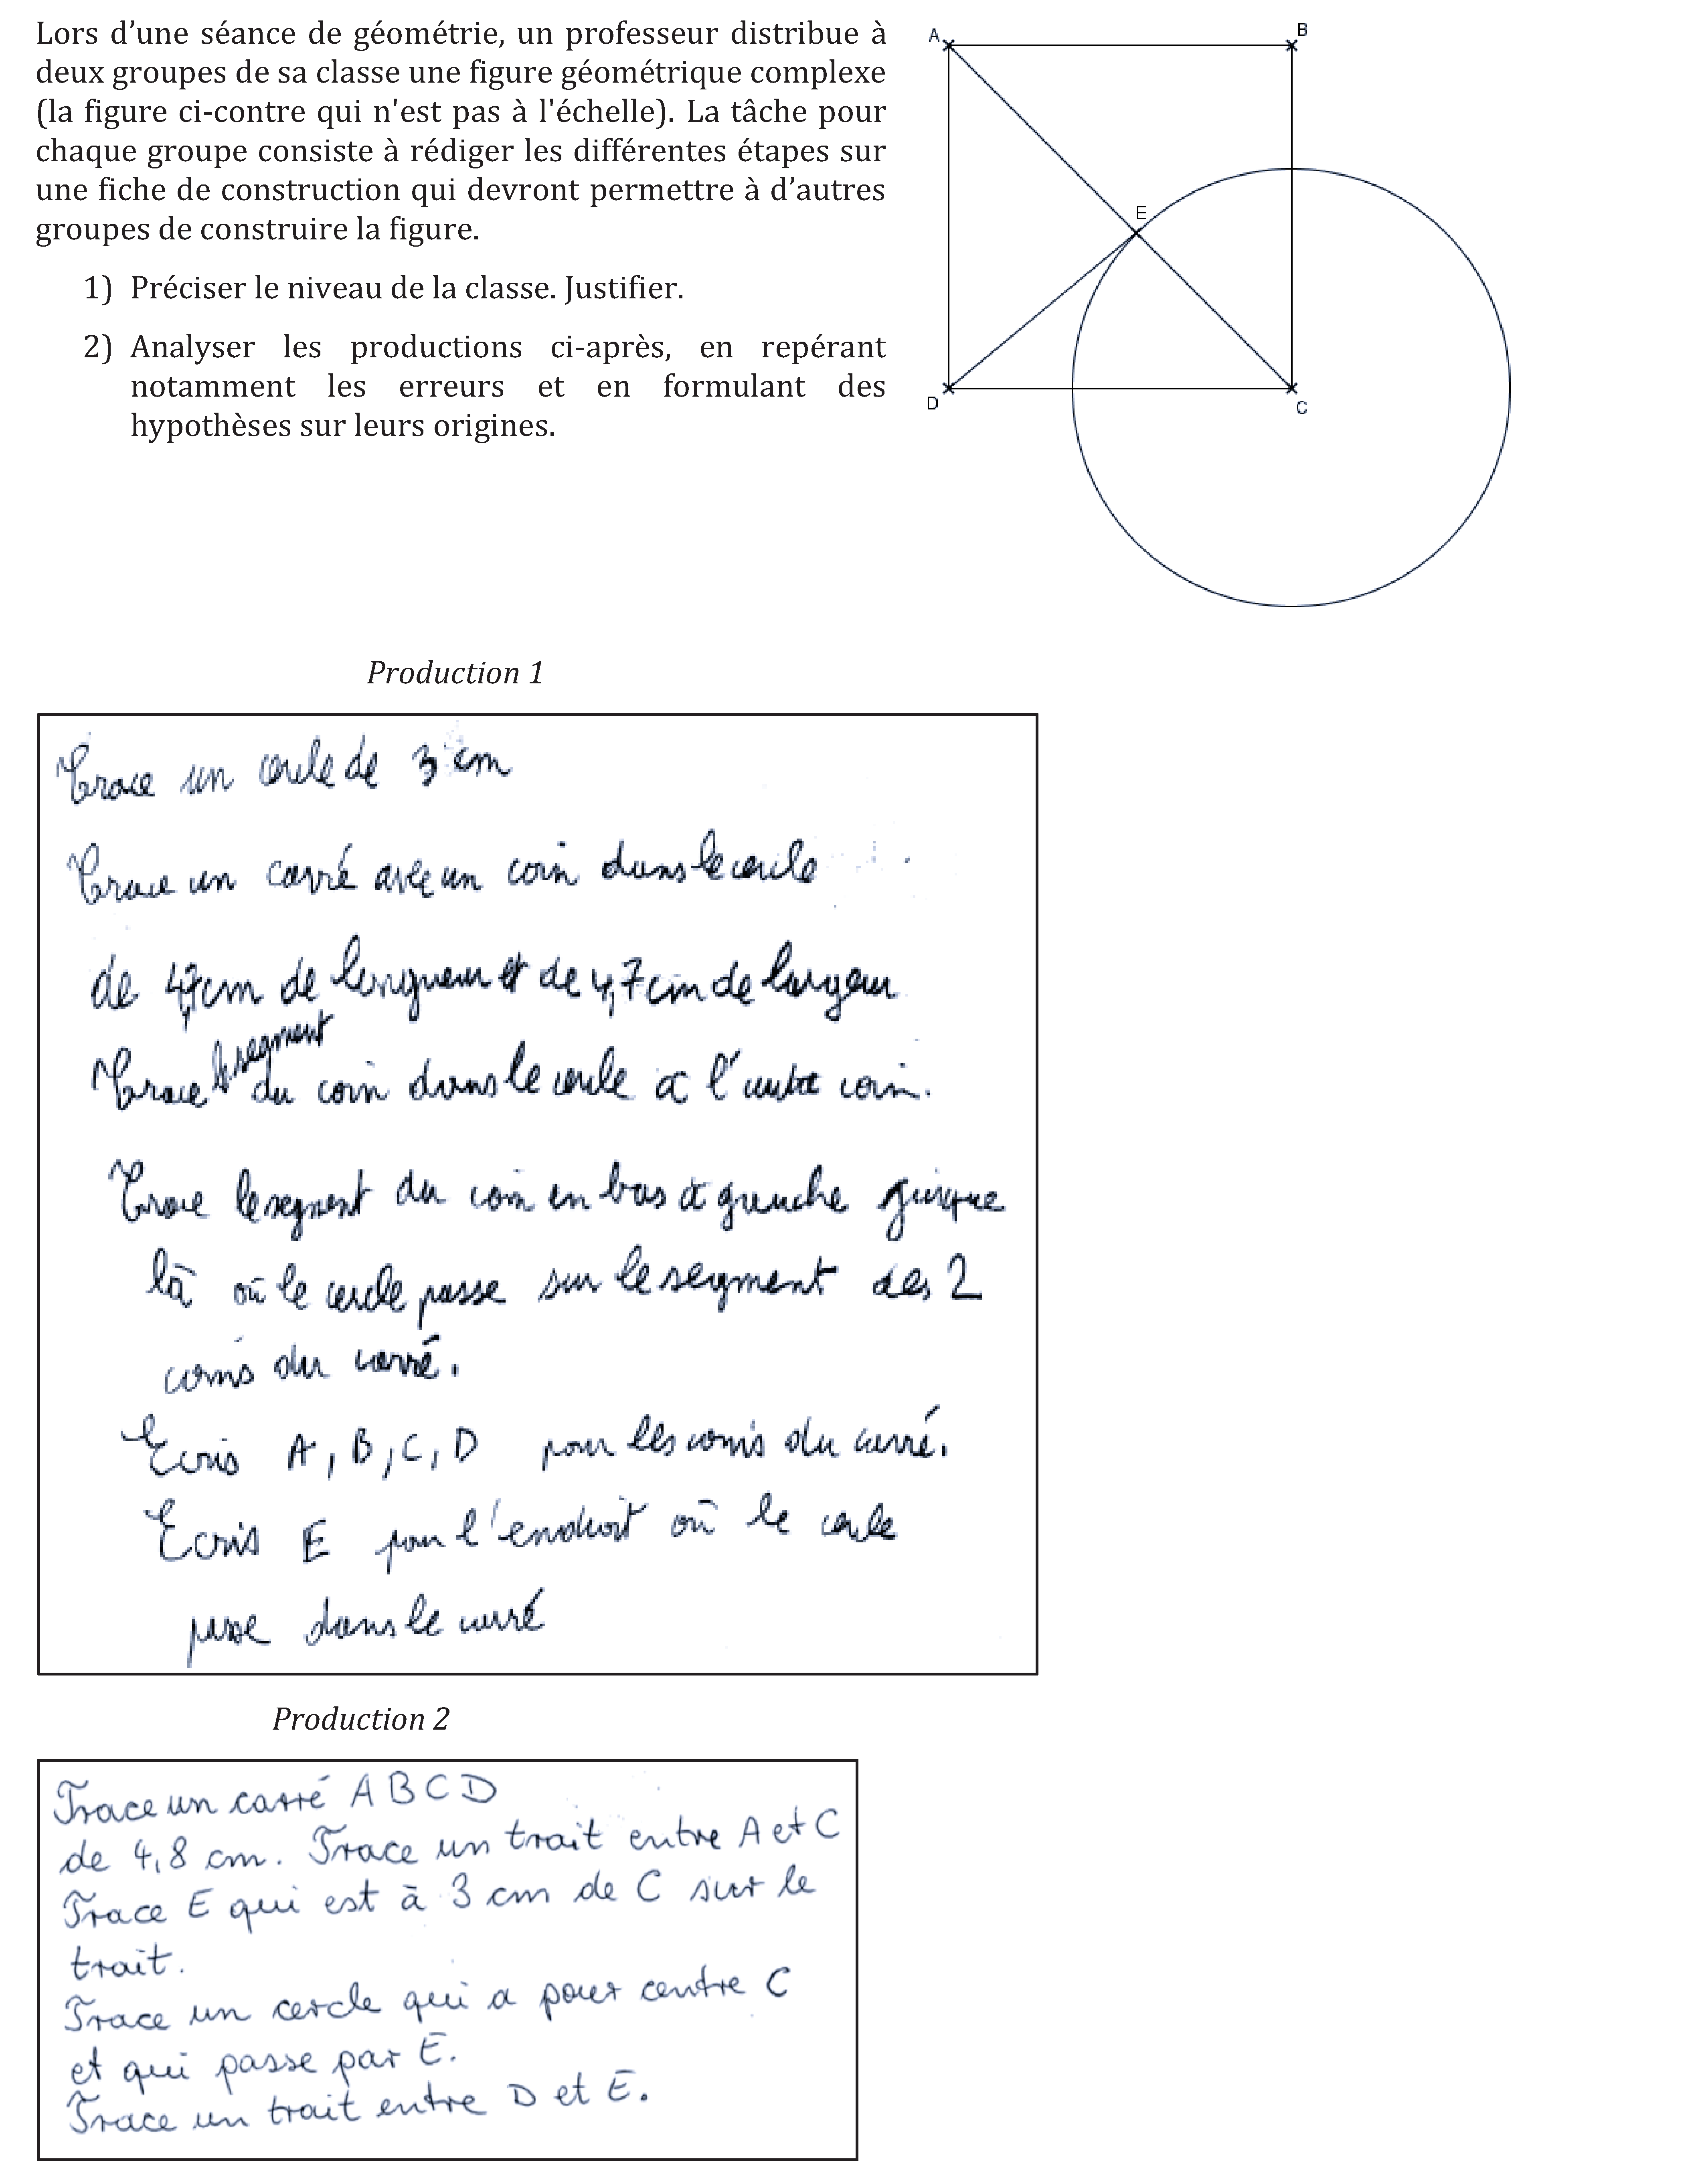 Lors d’une séance de géométrie, un professeur distribue à
deux groupes de sa classe une figure géométrique complexe
(la figure ci-contre qui n'est pas à l'échelle). La tâche pour
chaque groupe consiste à rédiger les différentes étapes sur
une fiche de construction qui devront permettre à d’autres
groupes de construire la figure.
1) Préciser le niveau de la classe. Justifier.
2) Analyser les productions ci-après, en repérant
notamment les erreurs et en formulant des
hypothèses sur leurs origines.
A
B
E
D
C
Production 1
Trace un cercle de 3 cm
Trace un carré avec un coin dans le cercle
de 4,7cm de longueur et de 4,7cm de largeur
Trace le segment du coin dans le cercle a l'autre coin.
Trace le segment du coin en bas à gauche jusque
là où le cercle passe sur le segment des 2
coins du carré.
Ecris A, B, C, D pour les coins du carré.
Ecris E pour l'endroit où le cercle
passe dans le carré
Production 2
Trace un carré A B C D
de 4,8 cm. Trace un trait entre A et C
Trace E qui est à 3 cm de C sur le
trait.
Trace un cercle qui a pour centre C
et qui passe par E.
Trace un trait entre D et E.